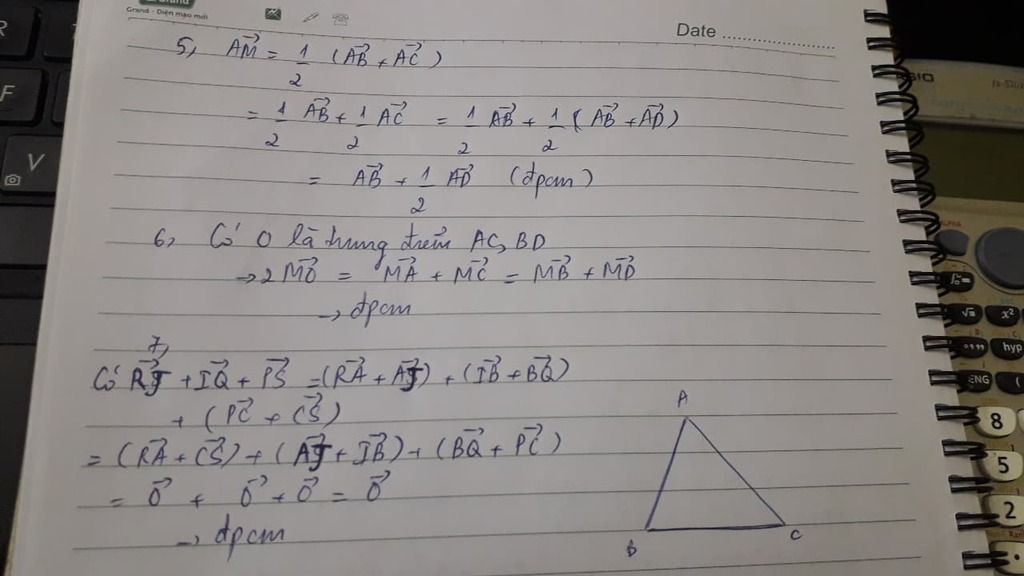 Grand - Diện mạo mới
Date
5, AM⃗ = 1/2 (AB⃗ + AC⃗)
= 1/2 AB⃗ + 1/2 AC⃗ = 1/2 AB⃗ + 1/2 (AB⃗ + AD⃗)
= AB⃗ + 1/2 AD⃗ (đpcm)
6, Có O là trung điểm AC, BD
→ 2MO⃗ = MA⃗ + MC⃗ = MB⃗ + MD⃗
→ đpcm
7,
Có RJ⃗ + IQ⃗ + PS⃗ = (RA⃗ + AJ⃗) + (IB⃗ + BQ⃗)
+ (PC⃗ + CS⃗)
= (RA⃗ + CS⃗) + (AJ⃗ + IB⃗) + (BQ⃗ + PC⃗)
= O⃗ + O⃗ + O⃗ = O⃗
→ đpcm
A
B
C
R
F
V
SIO
ALPHA
√x
x²
hyp
ENG
(
8
5
2